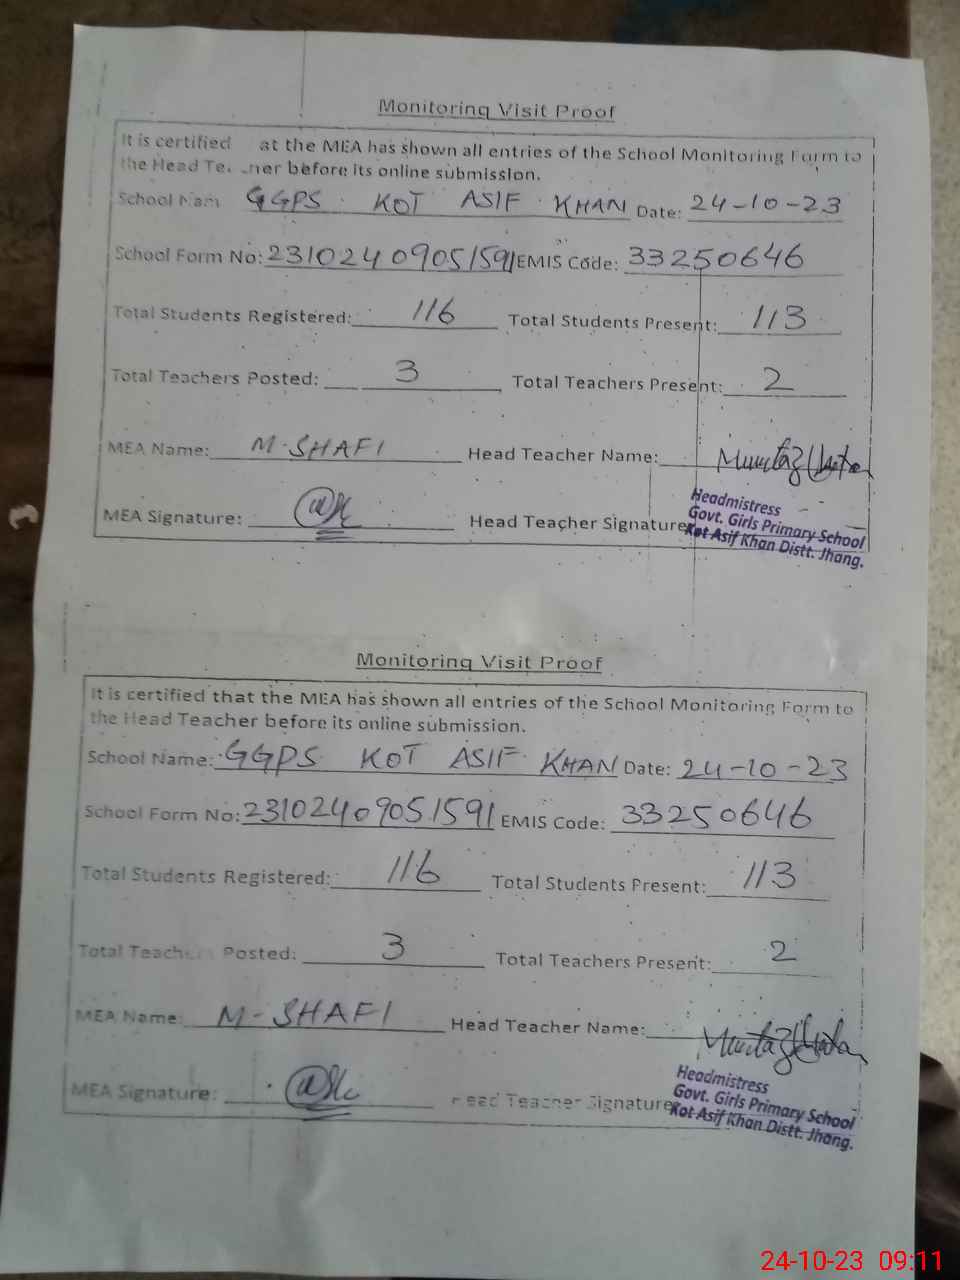 Monitoring Visit Proof
It is certified at the MEA has shown all entries of the School Monitoring Form to
the Head Te ner before its online submission.
School Nam GGPS KOT ASIF KHAN Date: 24-10-23
School Form No: 23102409051591 EMIS Code: 33250646
Total Students Registered: 116 Total Students Present: 113
Total Teachers Posted: 3 Total Teachers Present: 2
MEA Name: M-SHAFI Head Teacher Name: Mumtaz
MEA Signature: Head Teacher Signature
Headmistress
Govt. Girls Primary School
Kot Asif Khan Distt. Jhang.
Monitoring Visit Proof
It is certified that the MEA has shown all entries of the School Monitoring Form to
the Head Teacher before its online submission.
School Name: GGPS KOT ASIF KHAN Date: 24-10-23
School Form No: 23102409051591 EMIS Code: 33250646
Total Students Registered: 116 Total Students Present: 113
Total Teachers Posted: 3 Total Teachers Present: 2
MEA Name: M-SHAFI Head Teacher Name: Mumtaz
MEA Signature: Head Teacher Signature
Headmistress
Govt. Girls Primary School
Kot Asif Khan Distt. Jhang.
24-10-23 09:11